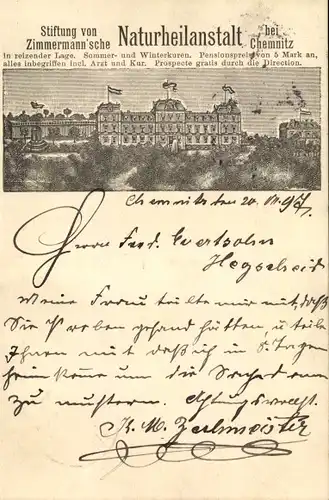 Stiftung von Zimmermann'sche Naturheilanstalt bei Chemnitz
in reizender Lage. Sommer- und Winterkuren. Pensionspreis von 5 Mark an,
alles inbegriffen incl. Arzt und Kur. Prospecte gratis durch die Direction.
Chemnitz den 20. 97
Herrn Ferd.
Meine Frau teilte mir mit, daß
Sie Proben gesand hätten, u teile
Ihnen mit daß ich in 8 Tagen
heim komme um die Sache dann
zu mustern. Achtungsvollst
K. M. Zechmeister